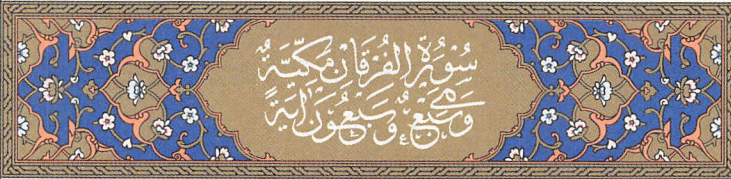 سُورَةُ الفُرْقَانِ مَكِّيَّةٌ
وَهِيَ سَبْعٌ وَسَبْعُونَ اٰيَةً